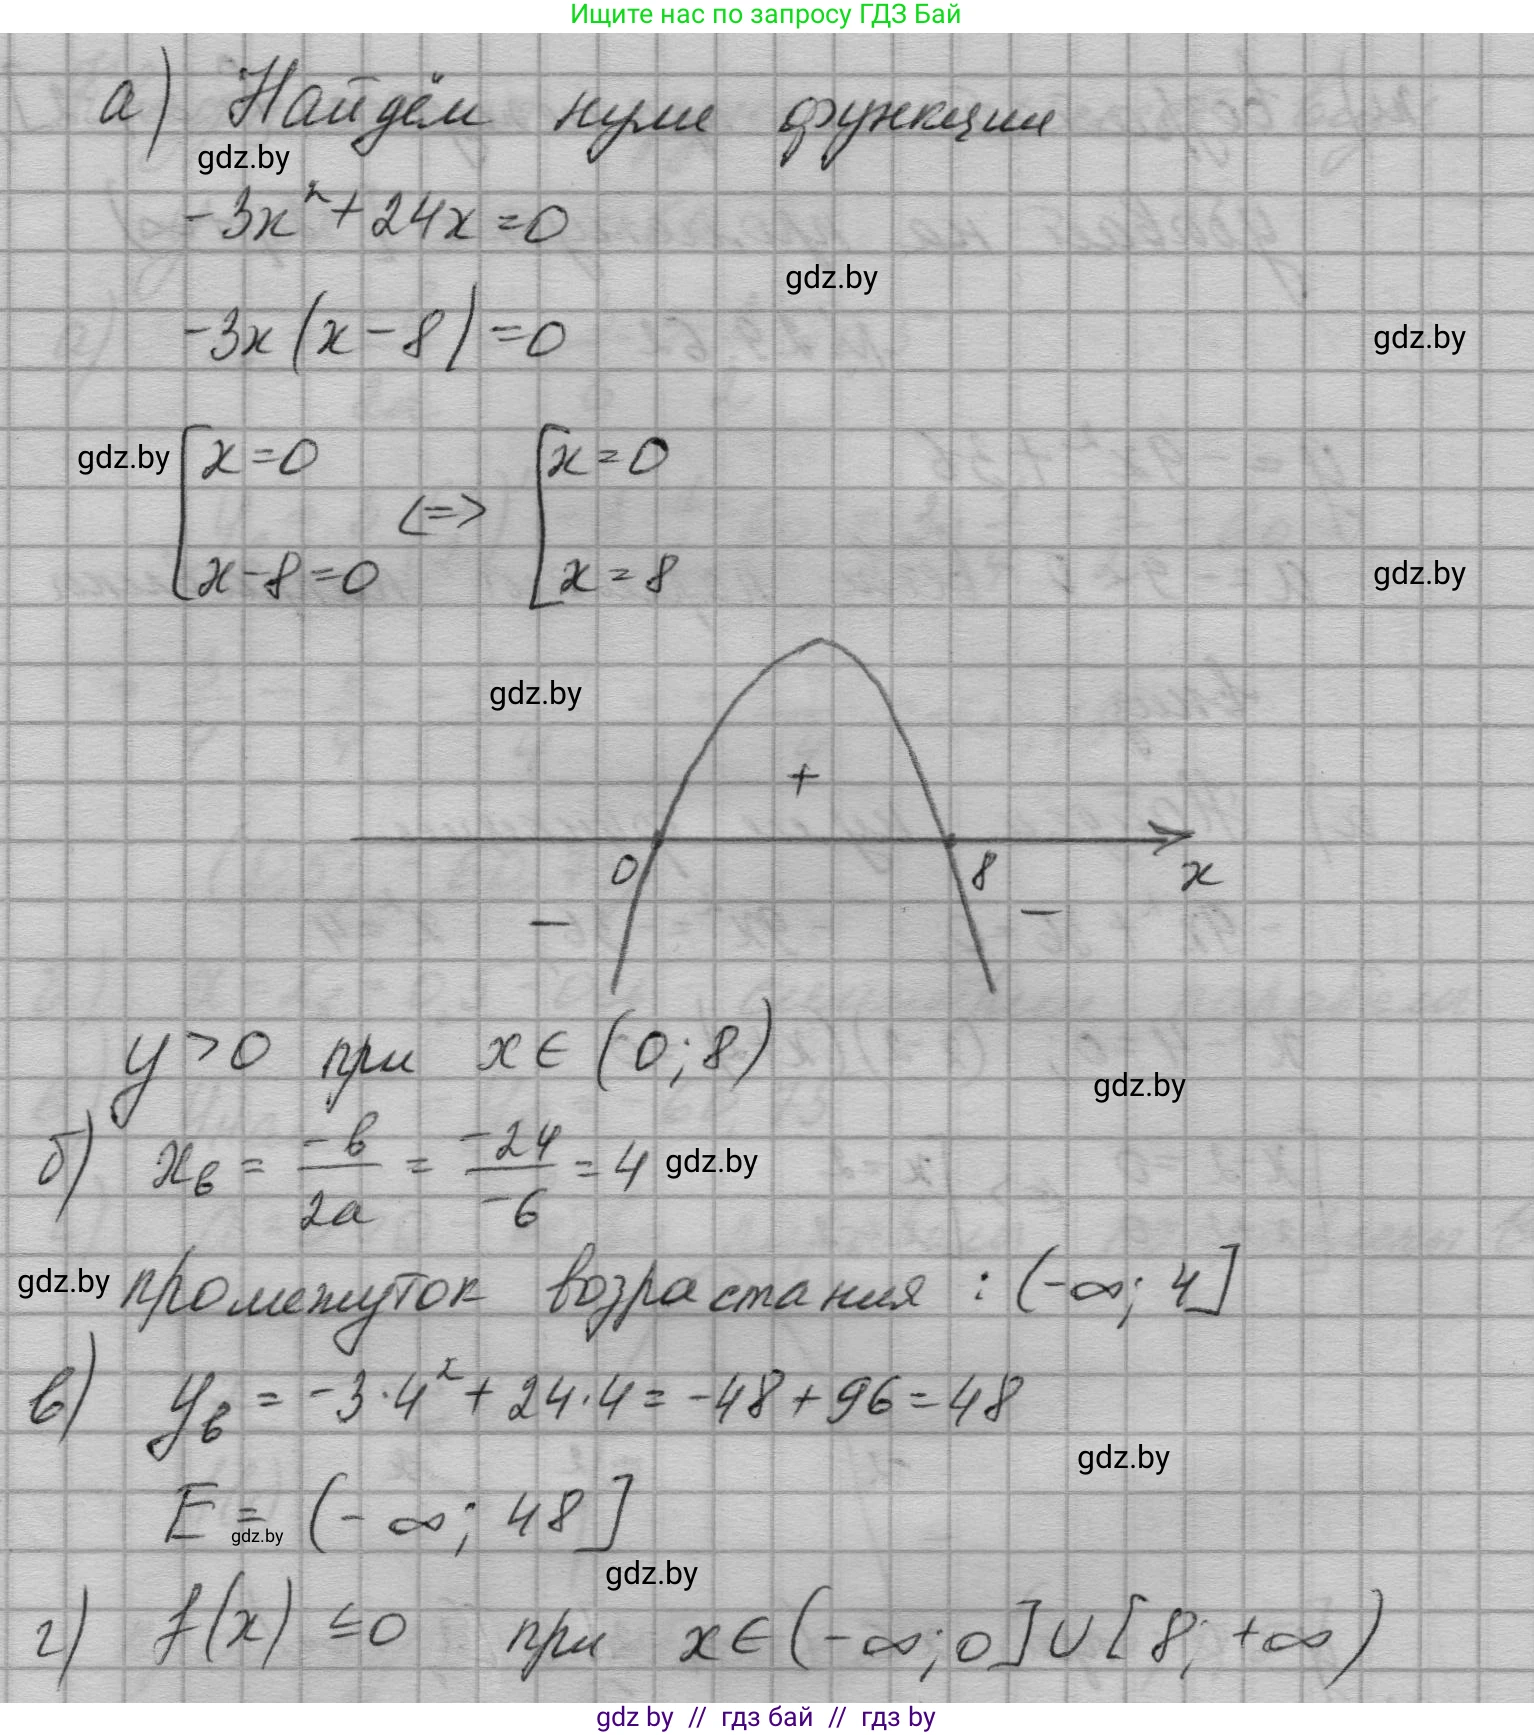 Ищите нас по запросу ГДЗ Бай
а) Найдём нули функции
gdz.by
-3x²+24x=0
gdz.by
-3x(x-8)=0
gdz.by
gdz.by
[x=0 <=> [x=0
x-8=0 x=8
gdz.by
gdz.by
+
0 8 x
- -
y>0 при x∈(0;8)
gdz.by
б) xв = -b/2a = -24/-6 = 4
gdz.by
gdz.by
промежуток возрастания: (-∞; 4]
в) yв = -3·4²+24·4=-48+96=48
gdz.by
E = (-∞; 48]
gdz.by
gdz.by
г) f(x) ≤0 при x∈(-∞;0]∪[8;+∞)
gdz by // гдз бай // гдз by